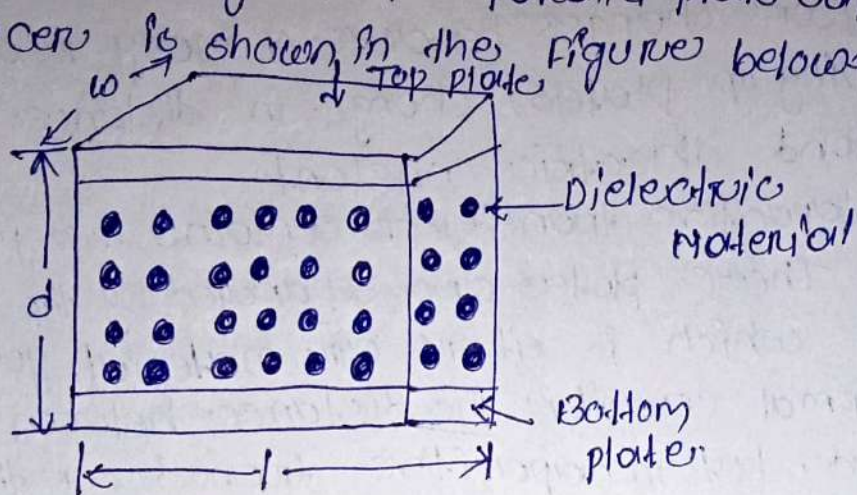 cer is shown in the Figure below:
w
Top plate
Dielectric
Material
d
Bottom
plate.
l